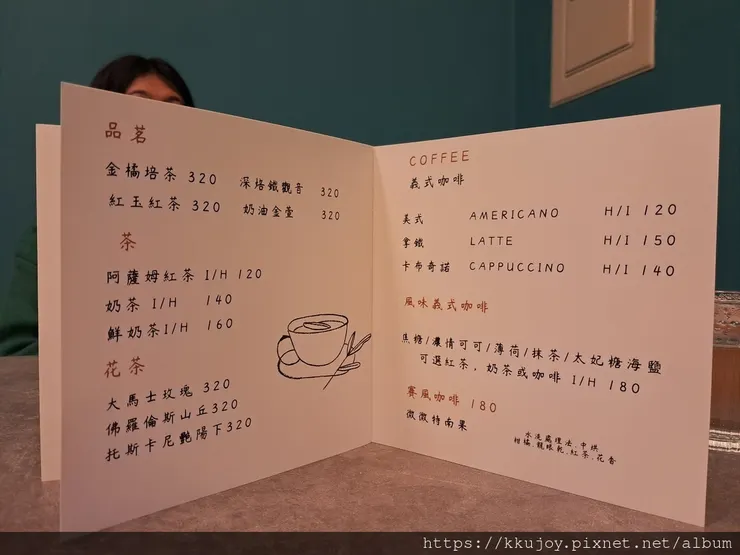 品茗
金橘培茶 320 深焙鐵觀音 320
紅玉紅茶 320 奶油金萱 320
茶
阿薩姆紅茶 I/H 120
奶茶 I/H 140
鮮奶茶I/H 160
花茶
大馬士玫瑰 320
佛羅倫斯山丘320
托斯卡尼艷陽下320
COFFEE
義式咖啡
美式 AMERICANO H/I 120
拿鐵 LATTE H/I 150
卡布奇諾 CAPPUCCINO H/I 140
風味義式咖啡
焦糖/濃情可可/薄荷/抹茶/太妃糖海鹽
可選紅茶，奶茶或咖啡 I/H 180
賽風咖啡 180
微微特南果
水洗處理法.中烘
柑橘.龍眼乾.紅茶.花香
https://kkujoy.pixnet.net/album